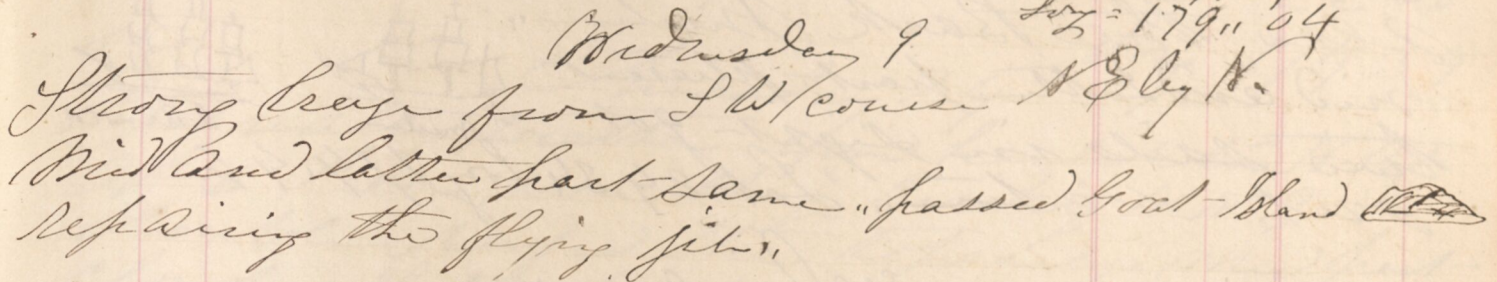 Wednesday 9 Long = 179,, 04
Strong breeze from S W course N E by N.
Mid and latter part same ,, passed Goat Island
repairing the flying jib ,,